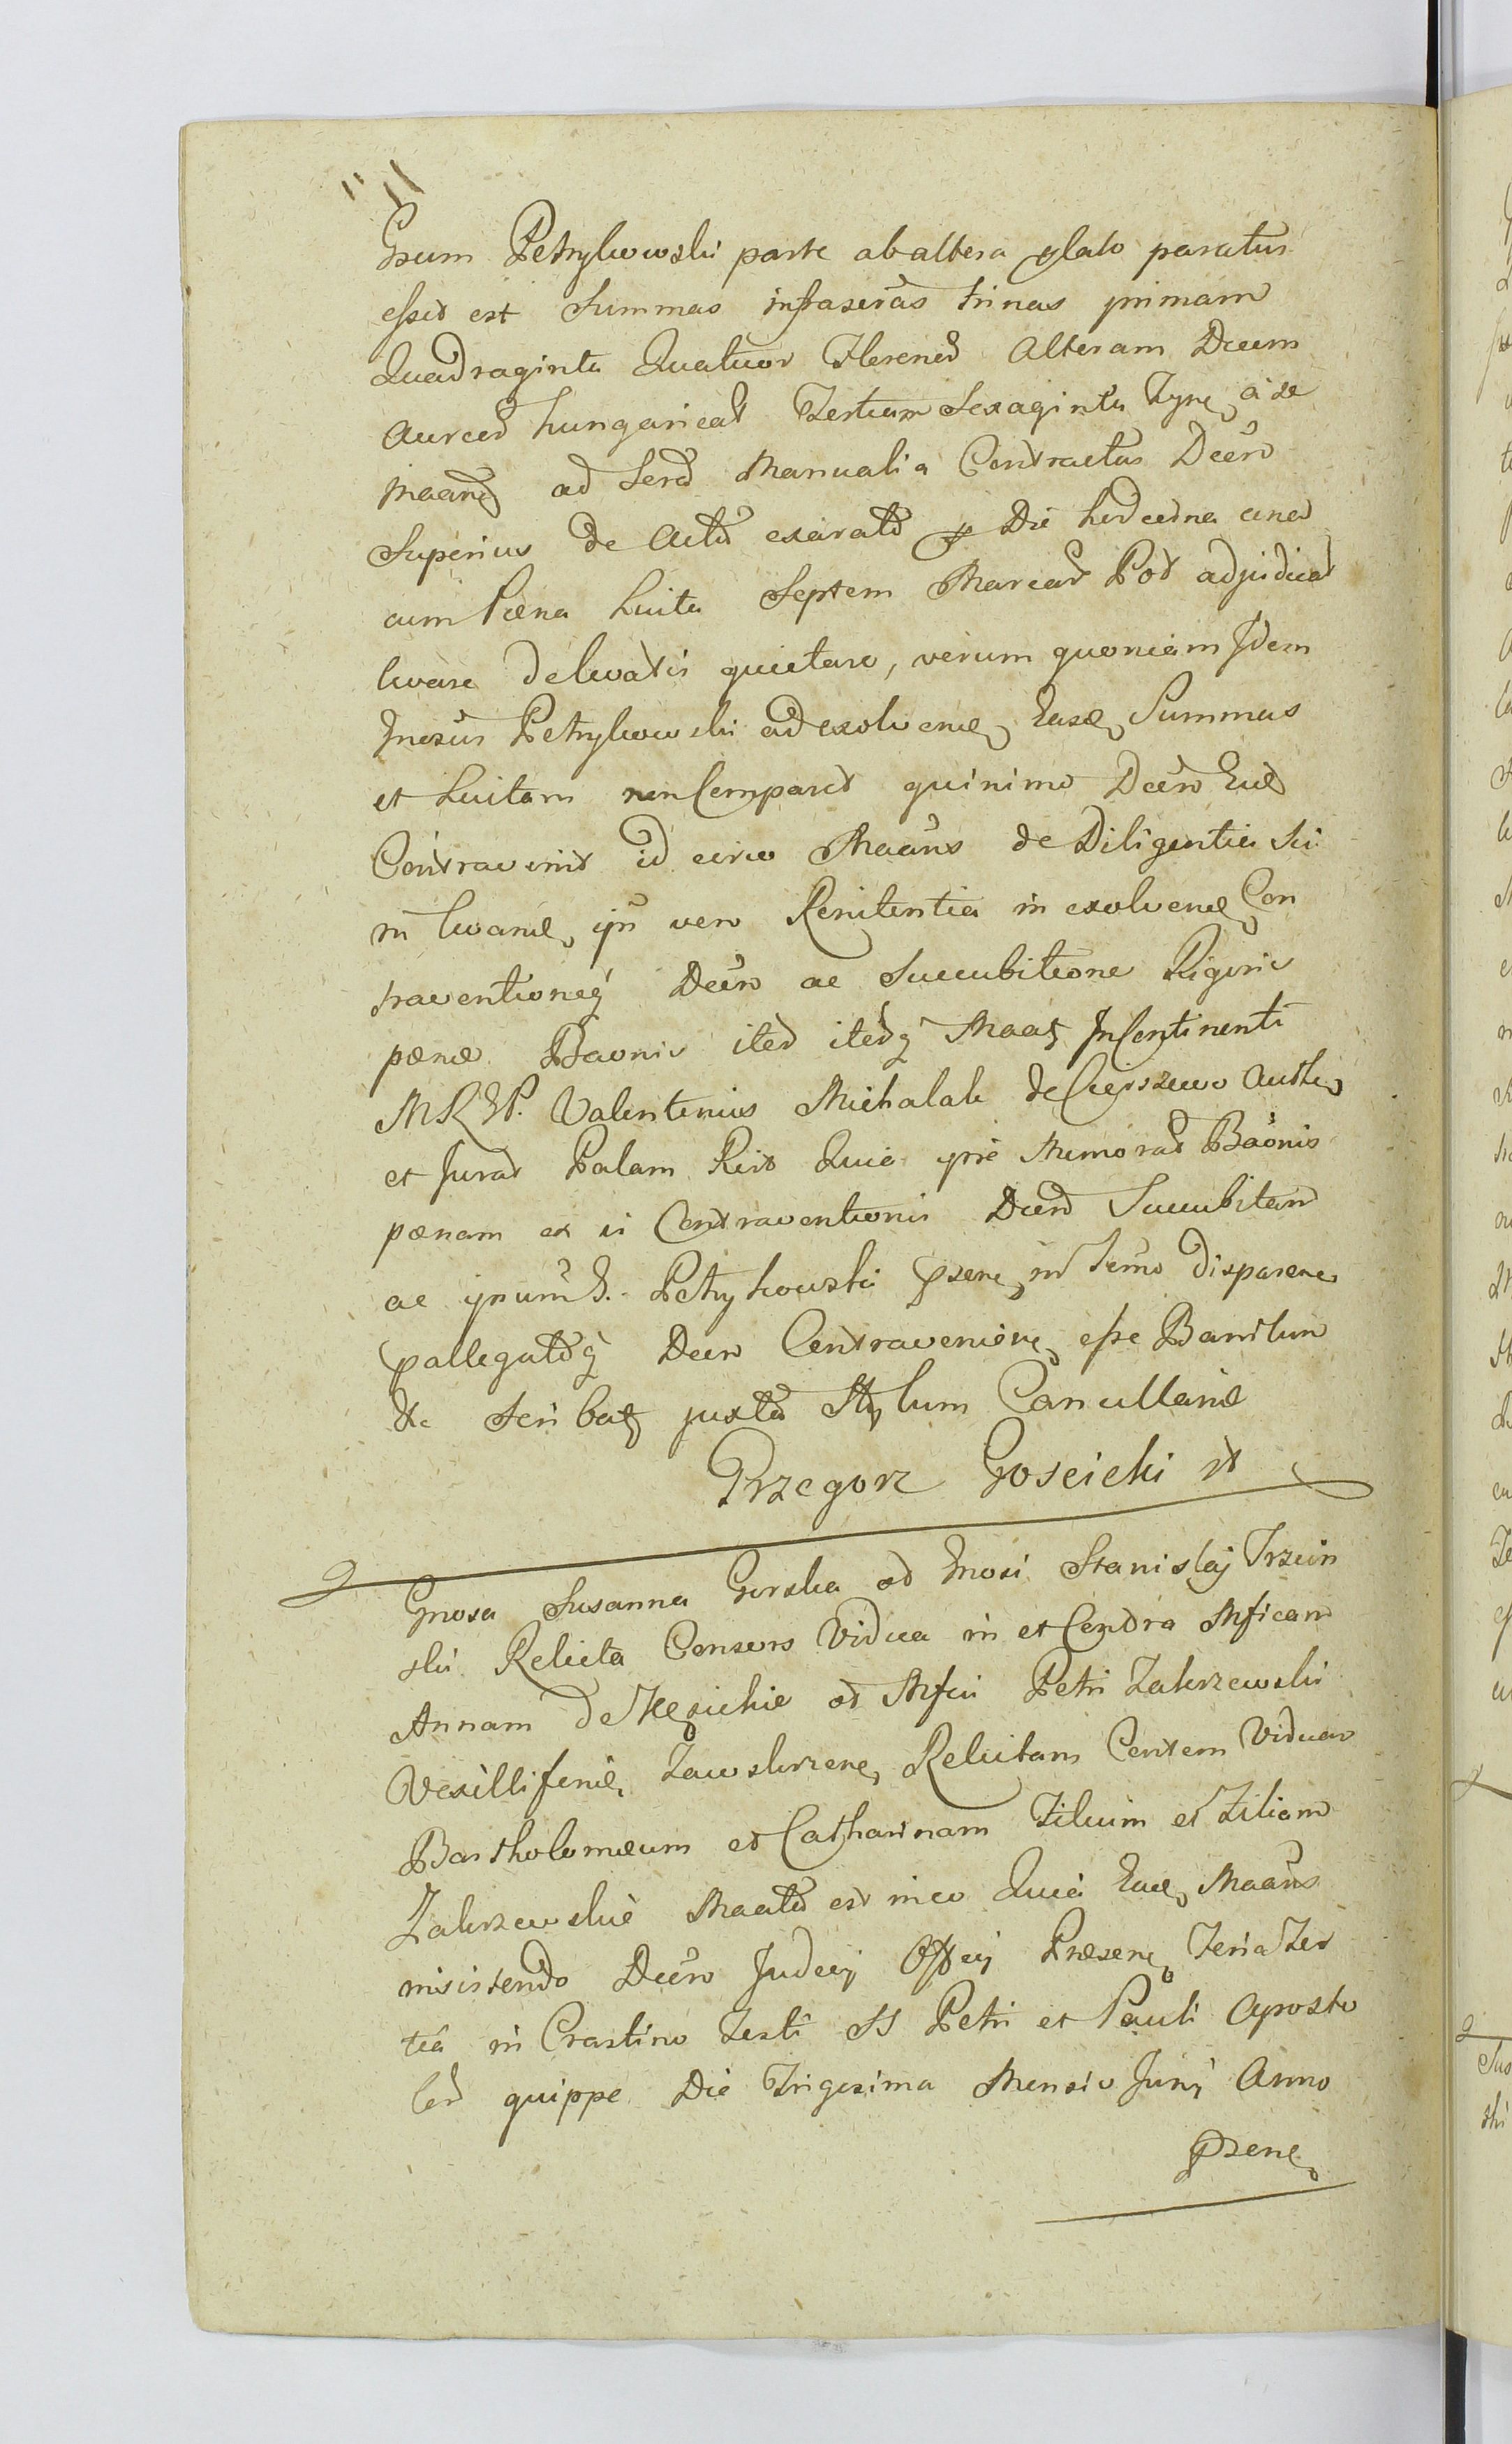 Gsum Petrykowski parte ab altera plato paratus
essed est Summas infraseras trinas primam
Quadraginta Quatuor Floren Alteram Decem
Aureor hungarical Tertiam Sexaginta Tynf a se
Maan ad Seral Manualia Contractus Decro
Superius de Actu exarato p Die hodierna una
cum Pæna Luita Septem Marcar Pol adjudicat
levare delevatis quietare, verum quoniam Idem
Gnosus Petrykowski ad exolvend Easd Summas
et Luitam non Comparet quinimo Decro Eid
Contravenit id circo Maans de Diligentia Sui
in levand, ipsi vero Renitentia in exolvend Con
traventioneq Decro ac Succubitione Rigoris
pænæ Baonis ited itedq Maat Incontinenti
MRGP. Valentinus Michalak de Cierszewo Authen
et Jurat Palam Reit Quia ipse Memorat Baonis
pænam ex ei Contraventionis Decro Succubitam
ac ipsum G. Petrykowski psene in Termo disparen
pallegatoq Decro Contravenien esse Banitum
&c Scribat juxta Stylum Cancellariæ
Grzegorz Goscicki st
Gnosa Susanna Gorska od Gnosi Stanislaj Trzcin
ski Relicta Consors Vidua in et Contra Mficam
Annam de Kęsickie od Mfici Petri Zakrzewski
Vexilliferid, Zawskrzen, Relictam Contem Viduam
Bartholomæum et Catharinam Filium et Filiam
Zakrzewskie Maato est in eo Quia Ead Maans
insistendo Decro Judicij Officij Præsen Feria Ter
tia in Crastino Festi SS Petri et Pauli Aposto
lor quippe Die Trigesima Mensis Junij Anno
psene